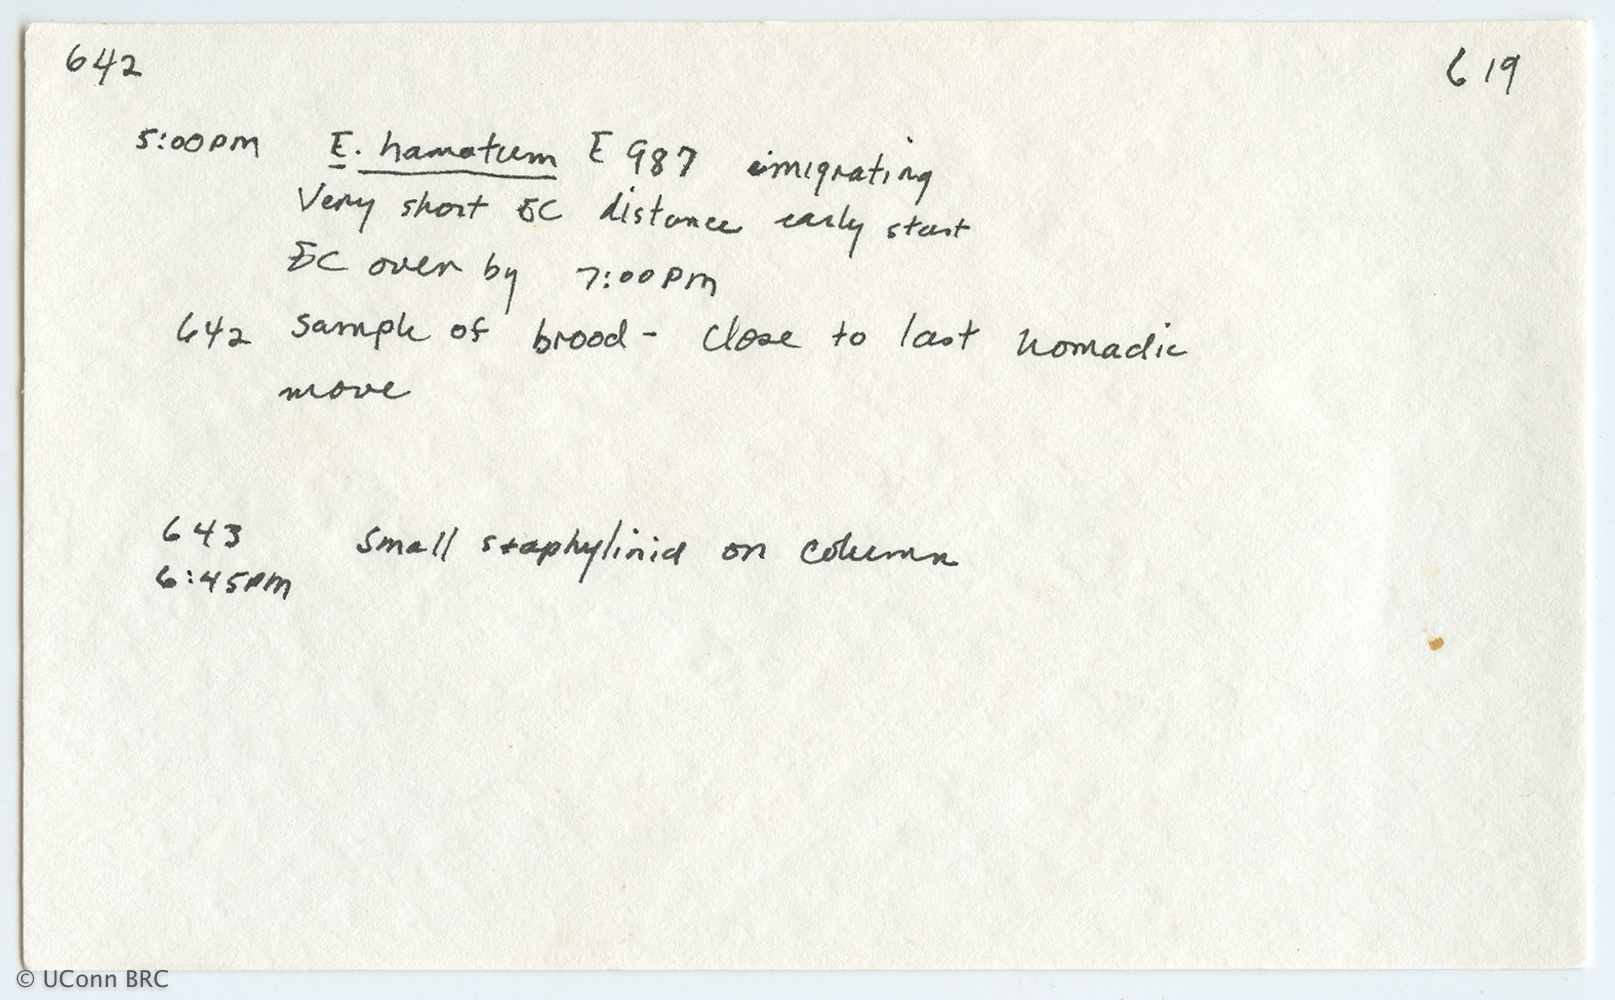 642 619
5:00PM E. hamatum E 987 emigrating
Very short EC distance early start
EC over by 7:00PM
642 sample of brood - close to last nomadic
move
643 small staphylinid on column
6:45PM
© UConn BRC